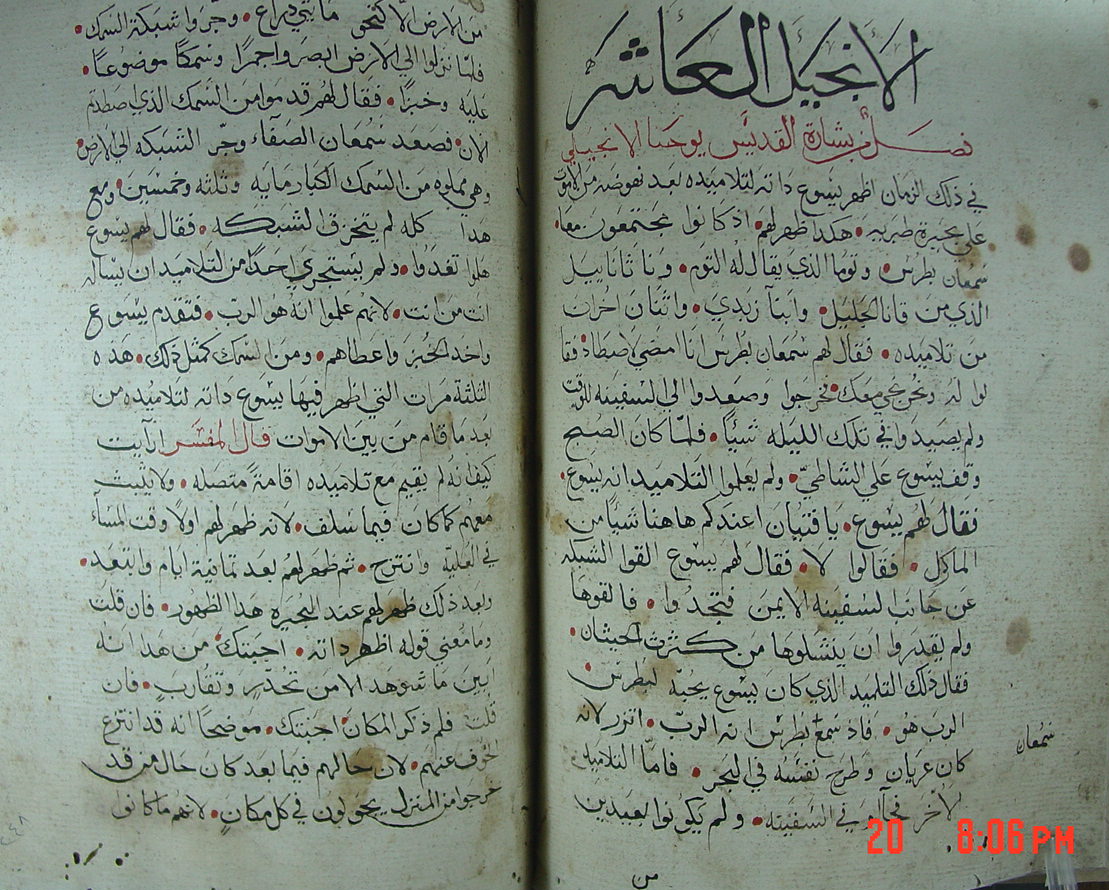 الانجيل العاشر
فصل من بشارة القديس يوحنا الانجيلي
في ذلك الزمان اظهر يسوع ذاته لتلاميذه بعد نهوضه من الاموات
على بحيرة طبريه • هكذا ظهر لهم • اذ كانوا مجتمعون معا •
سمعان بطرس • وتوما الذي يقال له التوم • وناثانابيل
الذي من قانا الجليل • وابنا زبدي • واثنان اخران
من تلاميذه • فقال لهم سمعان بطرس انا امضي لاصطاد • فقا
لوا له ونحن نجي معك • فخرجوا وصعدوا الى السفينه للوقت
ولم يصيدوا في تلك الليله شيًا • فلمّا كان الصبح
وقف يسوع على الشاطي • ولم يعلموا التلاميد انه يسوع •
فقال لهم يسوع • يا فتيان اعندكم هاهنا شيا من
الماكل • فقالوا لا • فقال لهم يسوع القوا الشبكه
عن جانب السفينه الايمن فتجدوا • فالقوها
ولم يقدروا ان ينشلوها من كثرت الحيثان •
فقال ذلك التلميد الذي كان يسوع يحبه لبطرس
الرب هو • فاد سمع بطرس انه الرب • اتزر لانه
سمعان
كان عريان وطرح نفسه في البحر • فامّا التلاميد
الاخر فجاوا في السفينه • ولم يكونوا بعيدين
من
من الارض الا كنحو مايتي دراع • وجروا شبكة السمك •
فلمّا نزلوا الى الارض ابصروا جمرًا وسمكًا موضوعًا •
عليه وخبزا • فقال لهم قدموا من السمك الذي اصطدتم
الان • فصعد سمعان الصفاء وجرّ الشبكه الى الارض
وهي مملوه من السمك الكبار مايه وثلثه وخمسين • ومع
هدا كله لم يتخرق الشبكه • فقال لهم يسوع
هلموا تغدوا • ولم يستجري احدًا من التلاميد ان يساله
انت من انت • لانهم علموا انه هو الرب • فتقدم يسوع
واخد الخبز واعطاهم • ومن السمك كمثل ذلك • هذه
الثلثة مرات التي اظهر فيها يسوع داته لتلاميذه من
بعد ما قام من بين الاموات قال المفسر ارايت
كيف انه لم يقيم مع تلاميذه اقامةً متصله • ولا يثبت
معهم كما كان فيما سلف • لانه ظهر لهم اولا وقت المساء
في العليه وانتزح • ثم ظهر لهم بعد ثمانية ايام وابتعد •
وبعد ذلك ظهر لهم عند البحيره هدا الظهور • فان قلت
وما معنى قوله اظهر داته • اجبتك • من هدا انه
ابين ما شوهد الا من تحدّر وتقارب • فان
قلت فلم ذكر المكان • اجبتك • موضحًا انه قد انتزع
الخوف عنهم • لان حالهم فيما بعد كان حال من قد
خرجوا من المنزل يجولون في كل مكان • لانهم ما كانوا
20 8:06 PM